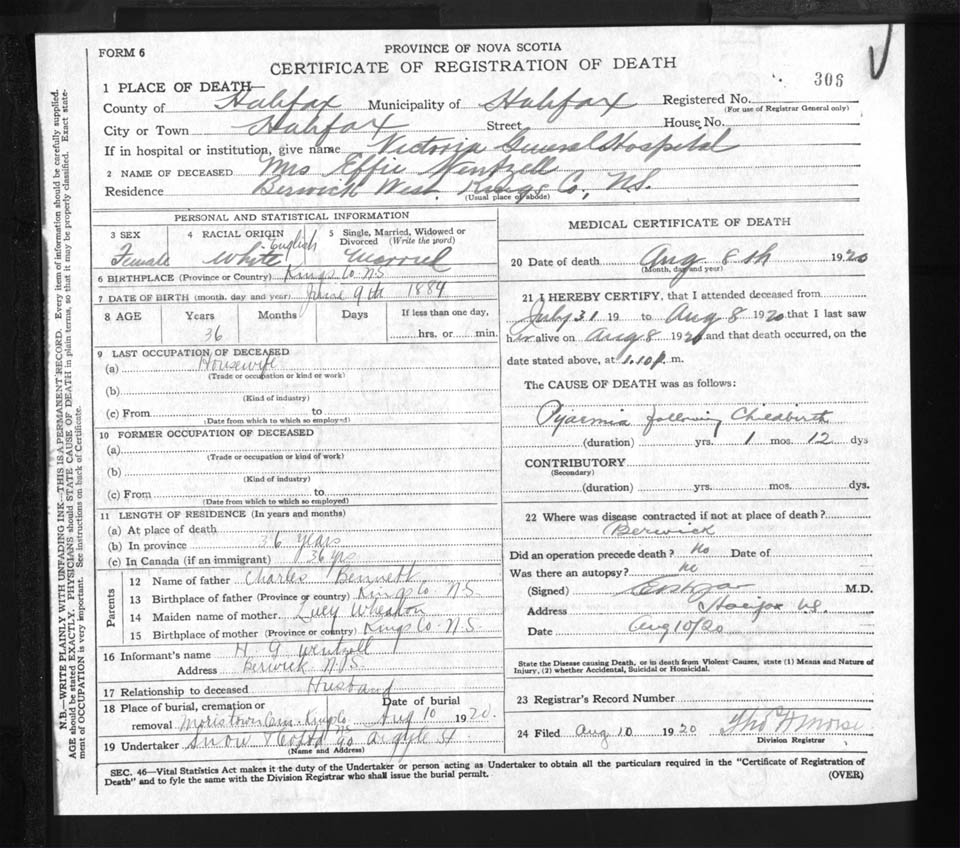 FORM 6
PROVINCE OF NOVA SCOTIA
CERTIFICATE OF REGISTRATION OF DEATH
306
1 PLACE OF DEATH—
County of Halifax Municipality of Halifax Registered No.
(For use of Registrar General only)
City or Town Halifax Street House No.
If in hospital or institution, give name Victoria General Hospital
2 NAME OF DECEASED Mrs Effie Wentzell
Residence Berwick West Kings Co, N.S.
(Usual place of abode)
PERSONAL AND STATISTICAL INFORMATION
3 SEX 4 RACIAL ORIGIN 5 Single, Married, Widowed or Divorced (Write the word)
Female White - English Married
6 BIRTHPLACE (Province or Country) Kings Co N.S
7 DATE OF BIRTH (month, day and year) June 9th 1884
8 AGE Years Months Days If less than one day,
36 hrs. or min.
9 LAST OCCUPATION OF DECEASED
(a) Housewife
(Trade or occupation or kind or work)
(b)
(Kind of industry)
(c) From to
(Date from which to which so employed)
10 FORMER OCCUPATION OF DECEASED
(a)
(Trade or occupation or kind of work)
(b)
(Kind of industry)
(c) From to
(Date from which to which so employed)
11 LENGTH OF RESIDENCE (In years and months)
(a) At place of death
(b) In province 36 years
(c) In Canada (if an immigrant) 36 yrs
Parents
12 Name of father Charles Bennett
13 Birthplace of father (Province or country) Kings Co N.S.
14 Maiden name of mother Lucy Wheaton
15 Birthplace of mother (Province or country) Kings Co N.S.
16 Informant's name H. G Wentzell
Address Berwick N.S.
17 Relationship to deceased Husband
18 Place of burial, cremation or removal Morristown Cem. Kings Co NS Date of burial Aug 10 1920.
19 Undertaker Snow & Co Ltd 90 Argyle St
(Name and Address)
MEDICAL CERTIFICATE OF DEATH
20 Date of death Aug 8th 1920
(Month, day and year)
21 I HEREBY CERTIFY, that I attended deceased from
July 31 19 to Aug 8 1920 that I last saw
her alive on Aug 8 1920 and that death occurred, on the
date stated above, at 1.10 p. m.
The CAUSE OF DEATH was as follows:
Pyaemia following Childbirth
(duration) yrs. 1 mos. 12 dys
CONTRIBUTORY
(Secondary)
(duration) yrs. mos. dys.
22 Where was disease contracted if not at place of death?
Berwick
Did an operation precede death? No Date of
Was there an autopsy? no
(Signed) M.D.
Address Halifax NS.
Date Aug 10/20
State the Disease causing Death, or in death from Violent Causes, state (1) Means and Nature of
Injury, (2) whether Accidental, Suicidal or Homicidal.
23 Registrar's Record Number
24 Filed Aug 10 1920
Division Registrar
SEC. 46—Vital Statistics Act makes it the duty of the Undertaker or person acting as Undertaker to obtain all the particulars required in the "Certificate of Registration of
Death" and to fyle the same with the Division Registrar who shall issue the burial permit.
(OVER)
N.B.—WRITE PLAINLY WITH UNFADING INK—THIS IS A PERMANENT RECORD. Every item of information should be carefully supplied.
AGE should be stated EXACTLY. PHYSICIANS should STATE CAUSE OF DEATH in plain terms, so that it may be properly classified. Exact state-
ment of OCCUPATION is very important. See instructions on back of Certificate.